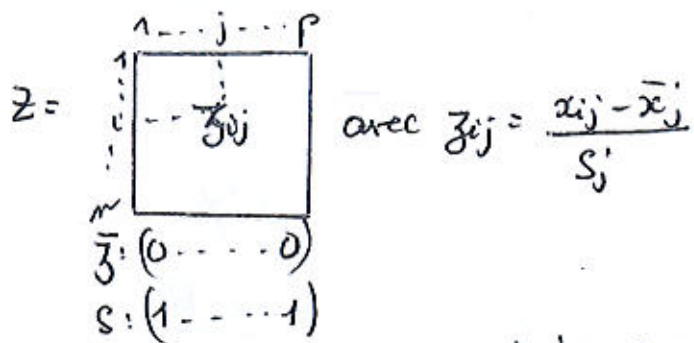 1 . . . . j . . . . p
1
Z = i - - - zij avec zij = (xij - x̄j) / Sj
n
z̄ : (0 - - - - 0)
S : (1 - - - - 1)